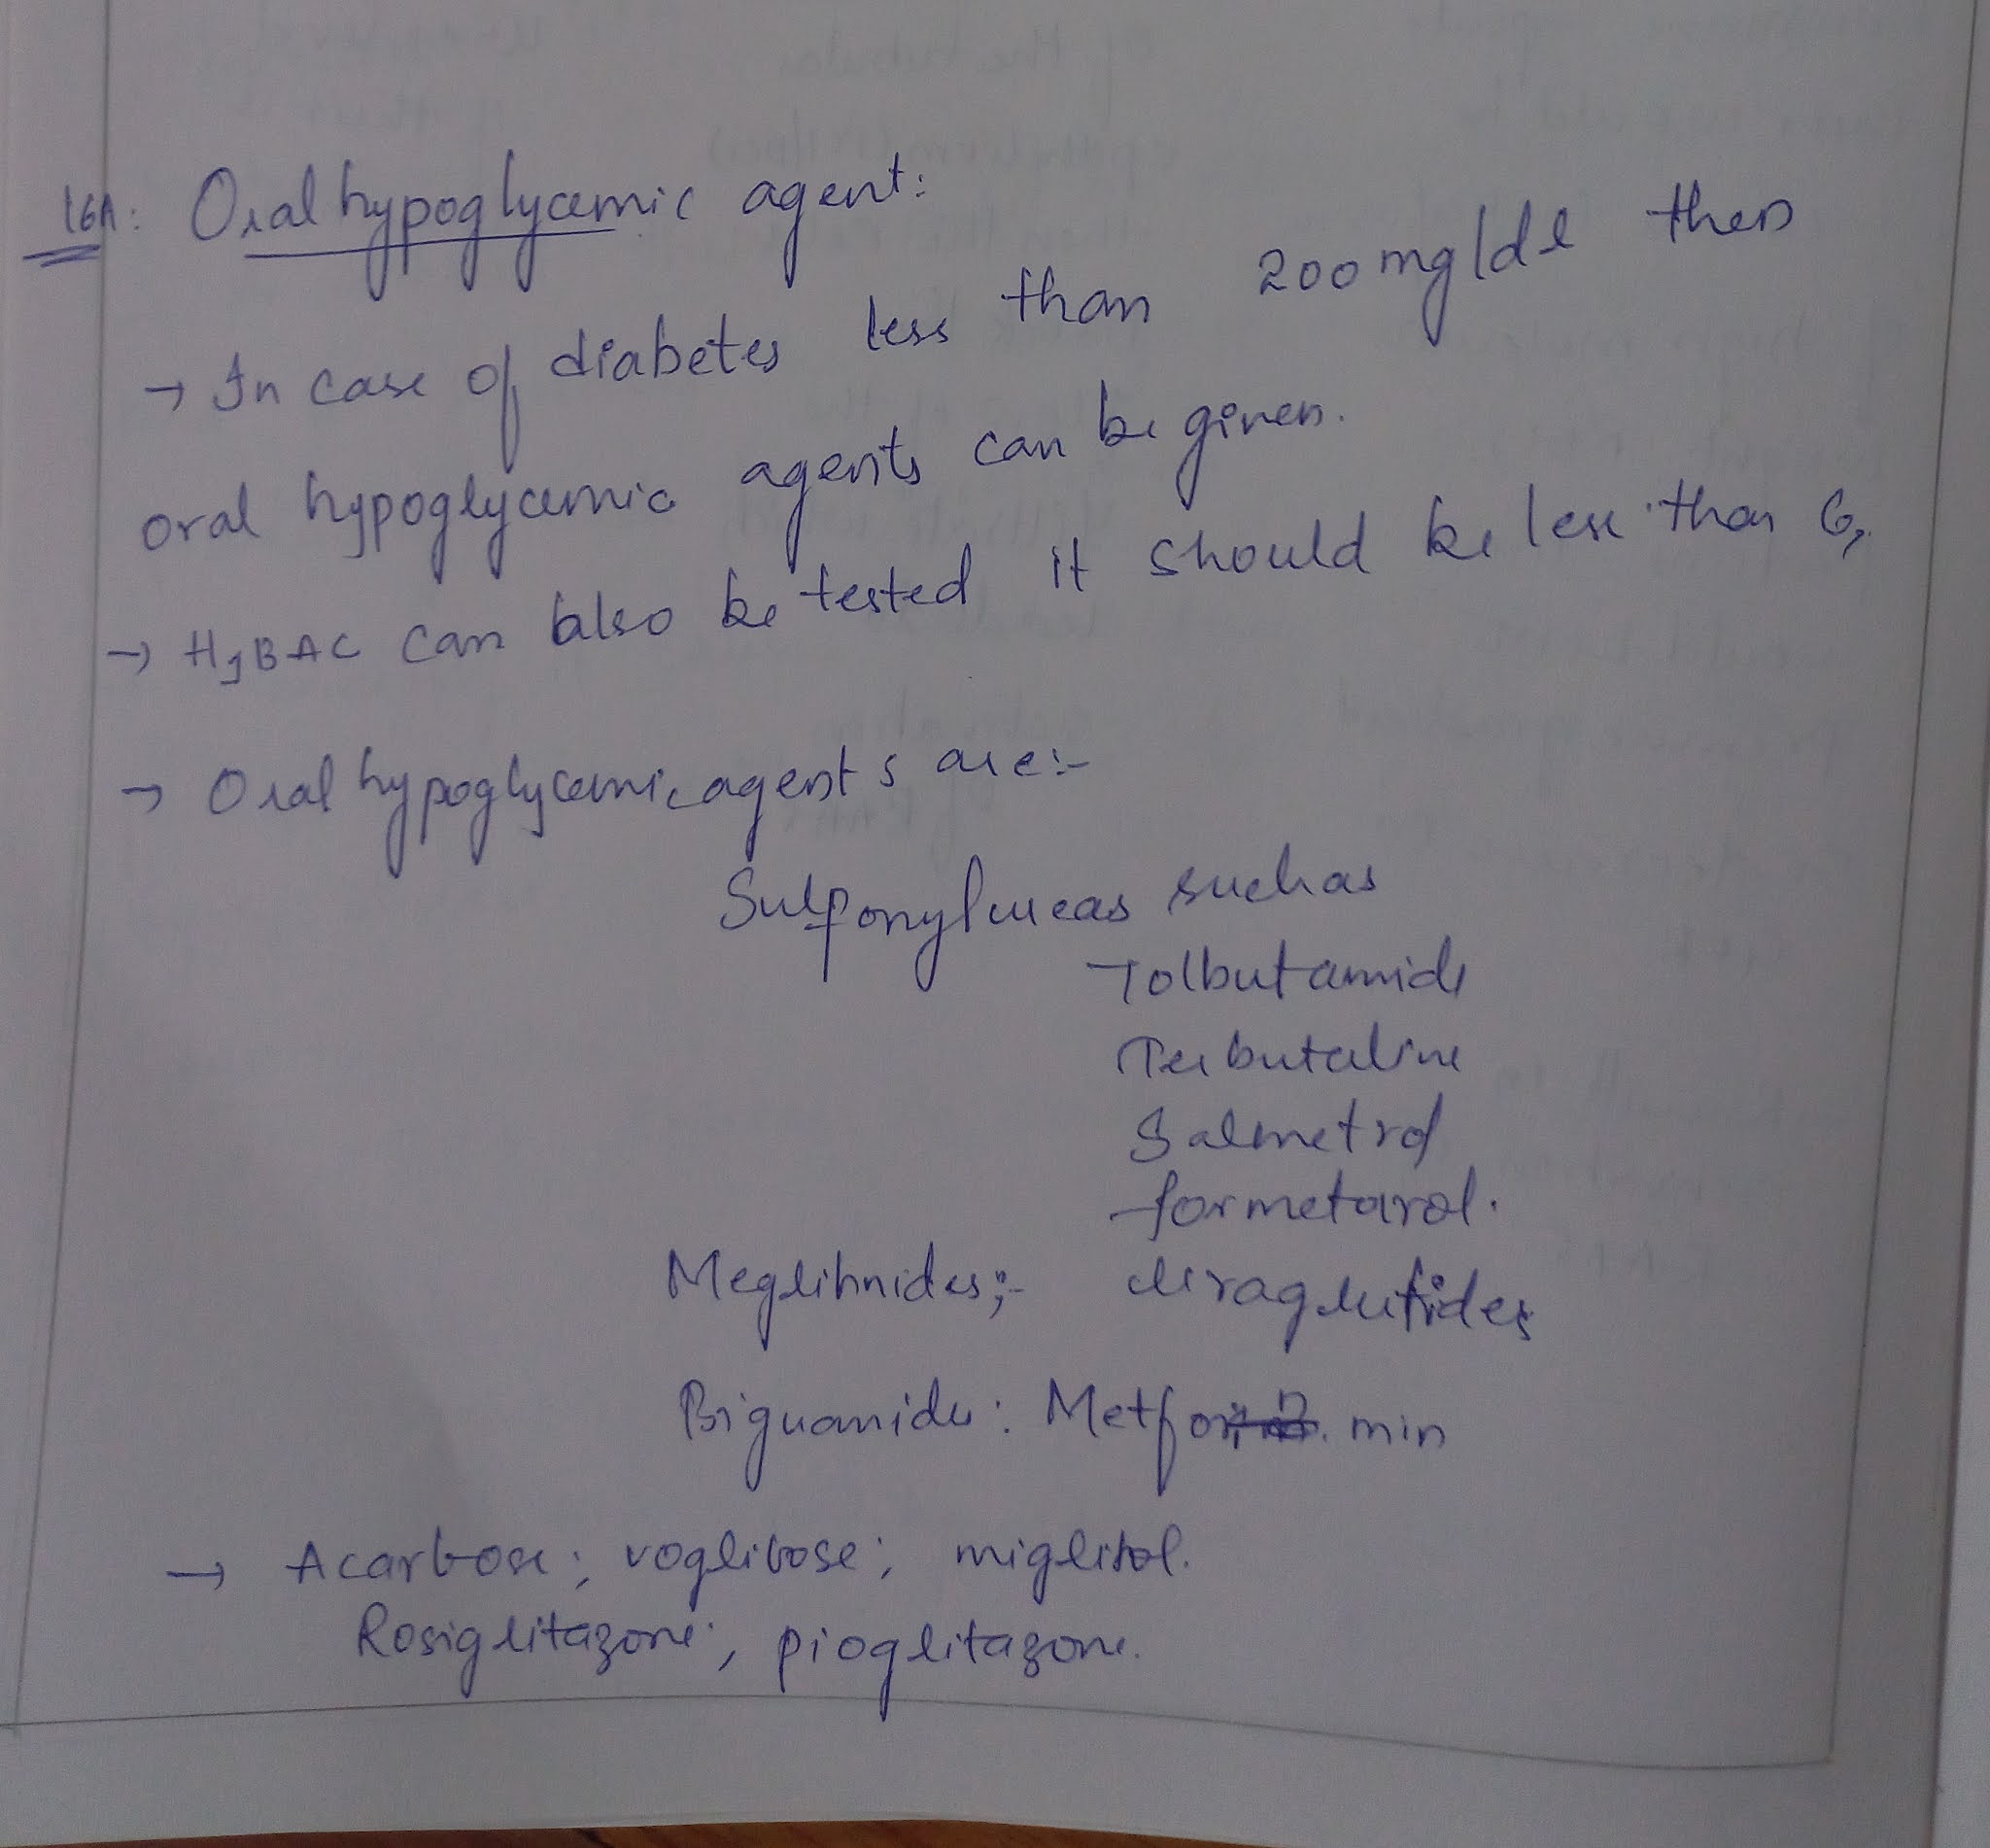 16A: Oral hypoglycemic agent:
→ In case of diabetes less than 200 mg/dl then
oral hypoglycemic agents can be given.
→ HgBAC can also be tested it should be less than 6,
→ Oral hypoglycemic agents are:-
Sulponylureas such as
Tolbutamide
Terbutaline
Salmetrol
formetarol.
Meglitinides;- liraglutides
Biguanide: Metformin
→ Acarbose; voglibose; miglitol.
Rosiglitazone; pioglitazone.